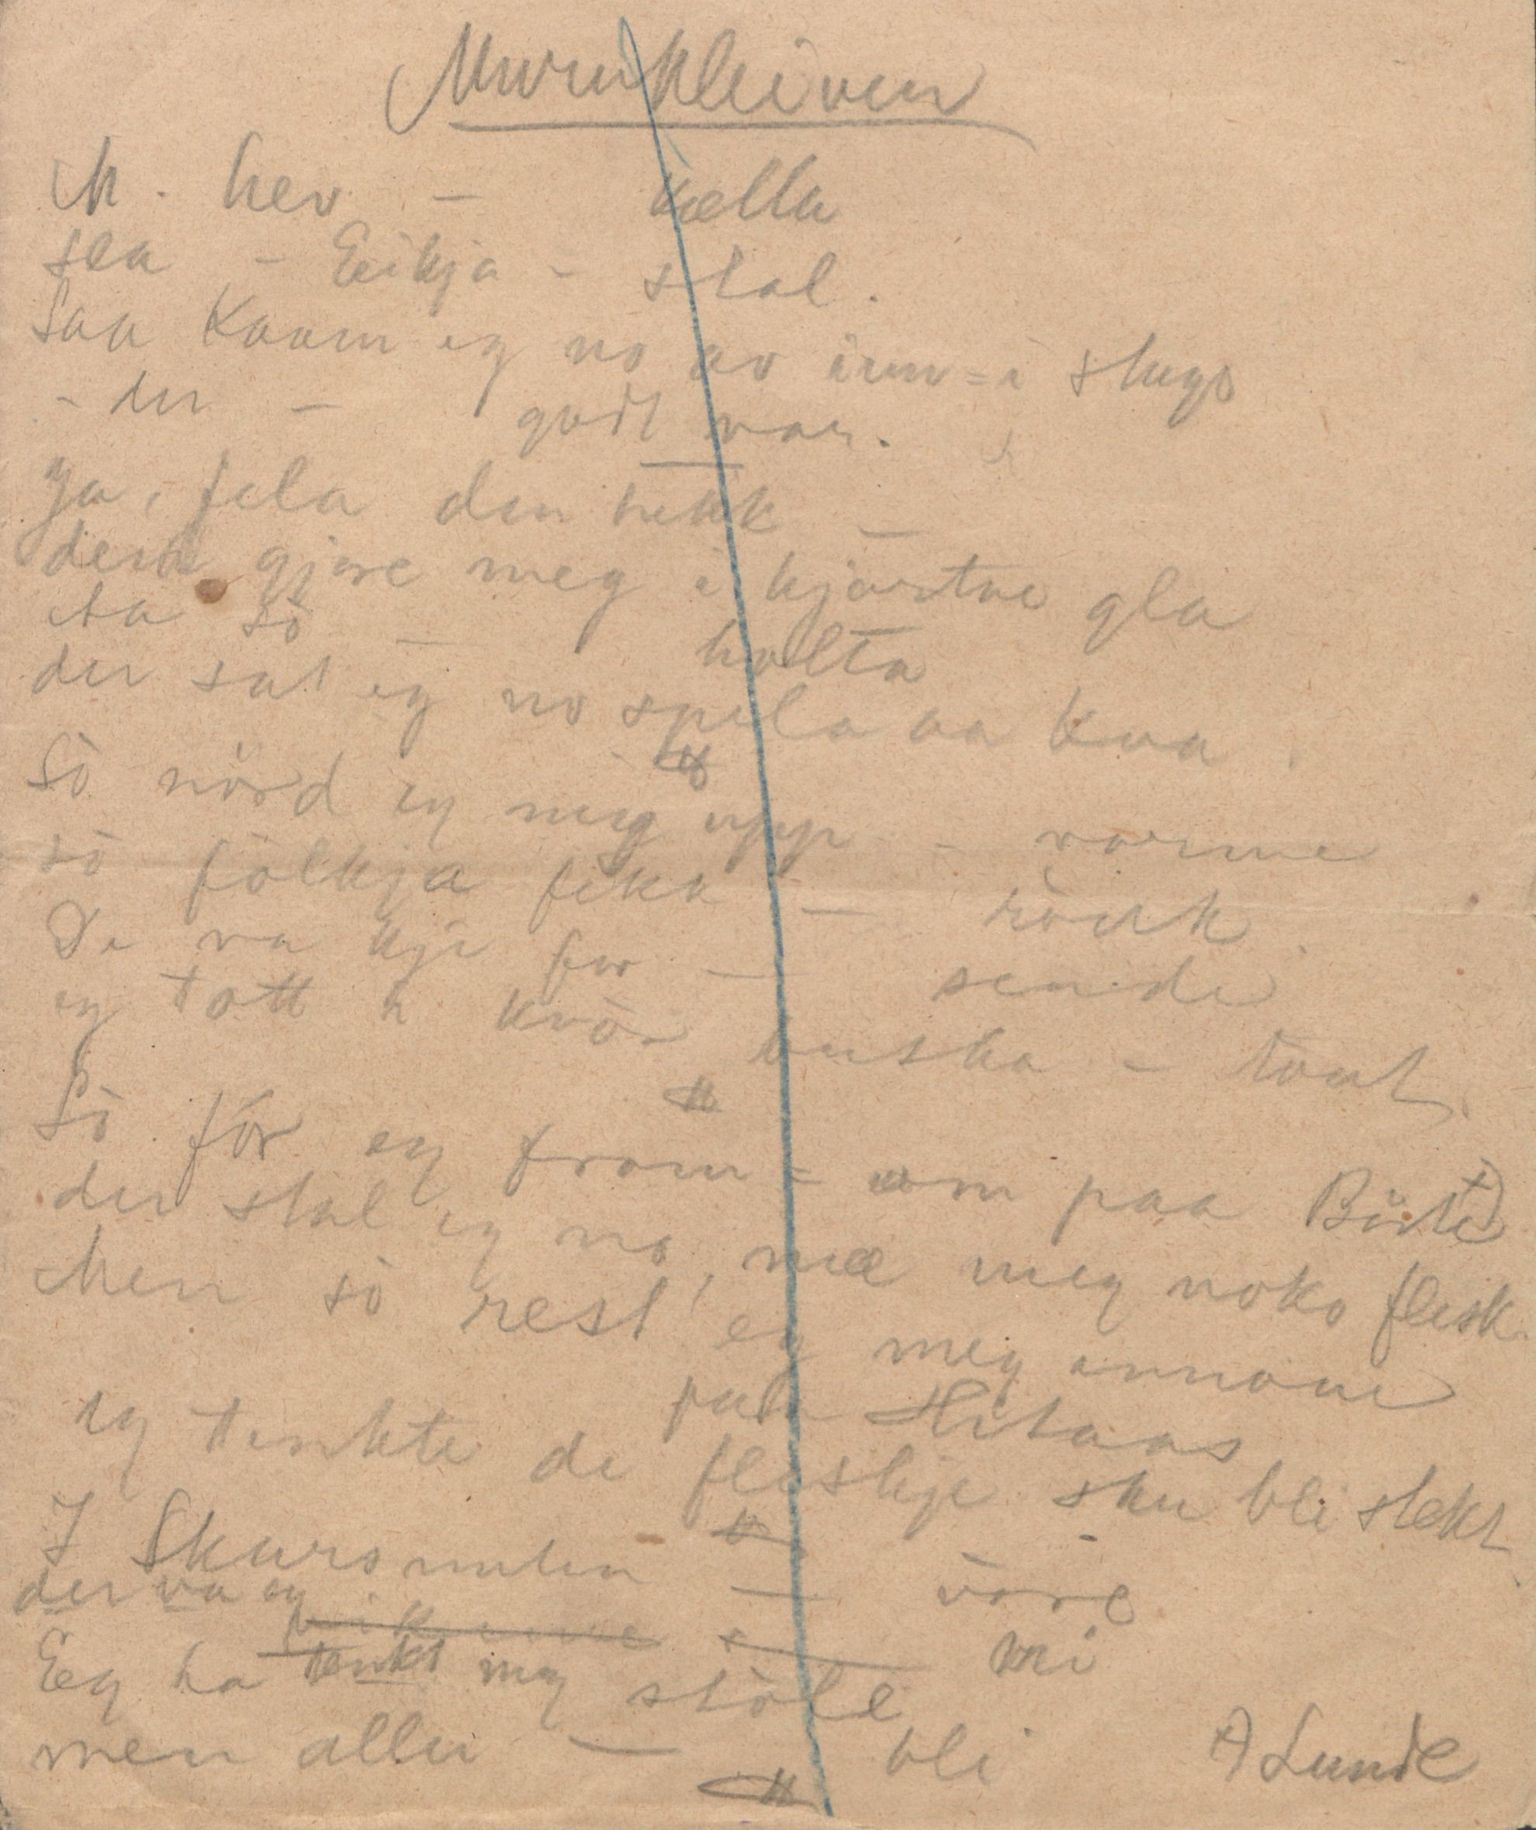 Murukleiven
M. hev – kella
sea – Eikja – stal.
Saa kaam eg no av inn = i stugo
– der – godt var.
Ja, fela den hekk –
den gjore meg i hjartae gla
Aa sò – holta
der sat eg no spela aa kva.
Sò nörd eg meg upp – varme
sò fòlkja fekk – ròuk.
De va kje for – sende
eg tott h kvòr buska – taut.
Sò fór eg fram = om paa Börte
der stal eg no mæ meg noko flesk.
Men sò rest' eg meg innove
paa Hitaas
eg tenkte de fleskje sku bli stekt
I Skurvenuten – vòre
der va eg – mi
Eg ha tenkt meg stòle
men aller – bli
A Lunde